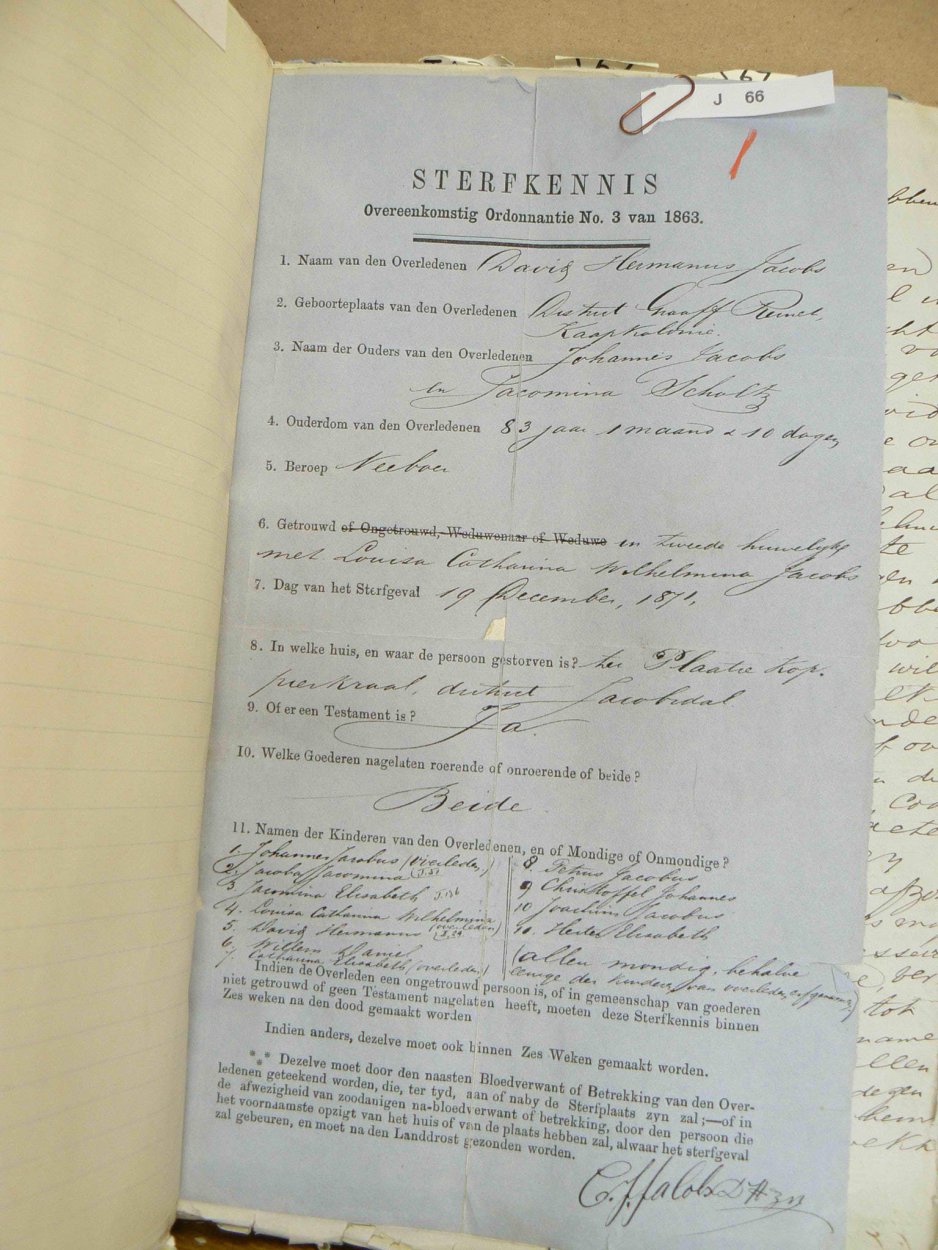 J 66
STERFKENNIS
Overeenkomstig Ordonnantie No. 3 van 1863.
1. Naam van den Overledenen David Hermanus Jacobs
2. Geboorteplaats van den Overledenen District Graaff Reinet,
Kaapkolonie.
3. Naam der Ouders van den Overledenen Johannes Jacobs
en Jacomina Scholtz
4. Ouderdom van den Overledenen 83 jaar 1 maand & 10 dagen
5. Beroep Veeboer
6. Getrouwd of Ongetrouwd, Weduwenaar of Weduwe in tweede huwelyk
met Louisa Catharina Wilhelmina Jacobs
7. Dag van het Sterfgeval 19 December, 1871,
8. In welke huis, en waar de persoon gestorven is? ter Plaatse Kop-
pieskraal, district Jacobsdal
9. Of er een Testament is? Ja.
10. Welke Goederen nagelaten roerende of onroerende of beide?
Beide
11. Namen der Kinderen van den Overledenen, en of Mondige of Onmondige?
1. Johannes Jacobus (overleden)
2. Jacoba Jacomina
3 Jacomina Elisabeth
4. Louisa Catharina Wilhelmina
(overleden)
5. David Hermanus
6. Willem Daniel
7. Catharina Elisabeth (overleden)
8 Petrus Jacobus
9 Christoffel Johannes
10 Joachim Jacobus
Elisabeth
(allen mondig, behalve
eenige der kinders van overleden erfgenamen)
Indien de Overleden een ongetrouwd persoon is, of in gemeenschap van goederen
niet getrouwd of geen Testament nagelaten heeft, moeten deze Sterfkennis binnen
Zes weken na den dood gemaakt worden
Indien anders, dezelve moet ook binnen Zes Weken gemaakt worden.
*** Dezelve moet door den naasten Bloedverwant of Betrekking van den Over-
ledenen geteekend worden, die, ter tyd, aan of naby de Sterfplaats zyn zal;—of in
de afwezigheid van zoodanigen na-bloedverwant of betrekking, door den persoon die
het voornaamste opzigt van het huis of van de plaats hebben zal, alwaar het sterfgeval
zal gebeuren, en moet na den Landdrost gezonden worden.
C. J. Jacobs D H zn